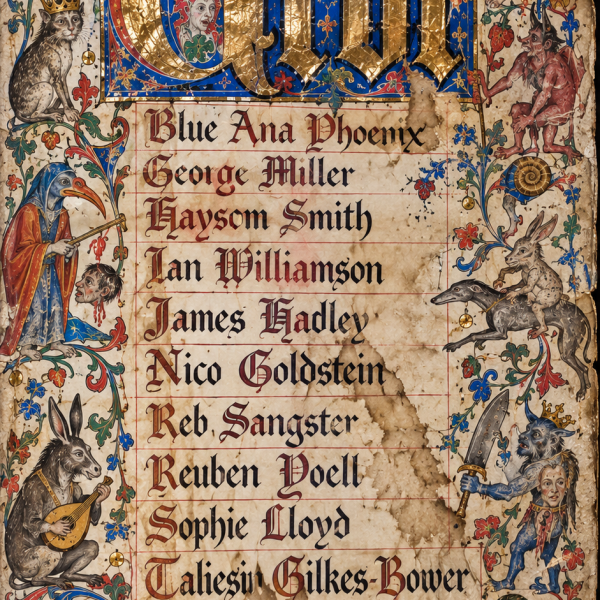 Blue Ana Phoenix
George Miller
Haysom Smith
Ian Williamson
James Hadley
Nico Goldstein
Reb Sangster
Reuben Yoell
Sophie Lloyd
Taliesin Gilkes-Bower